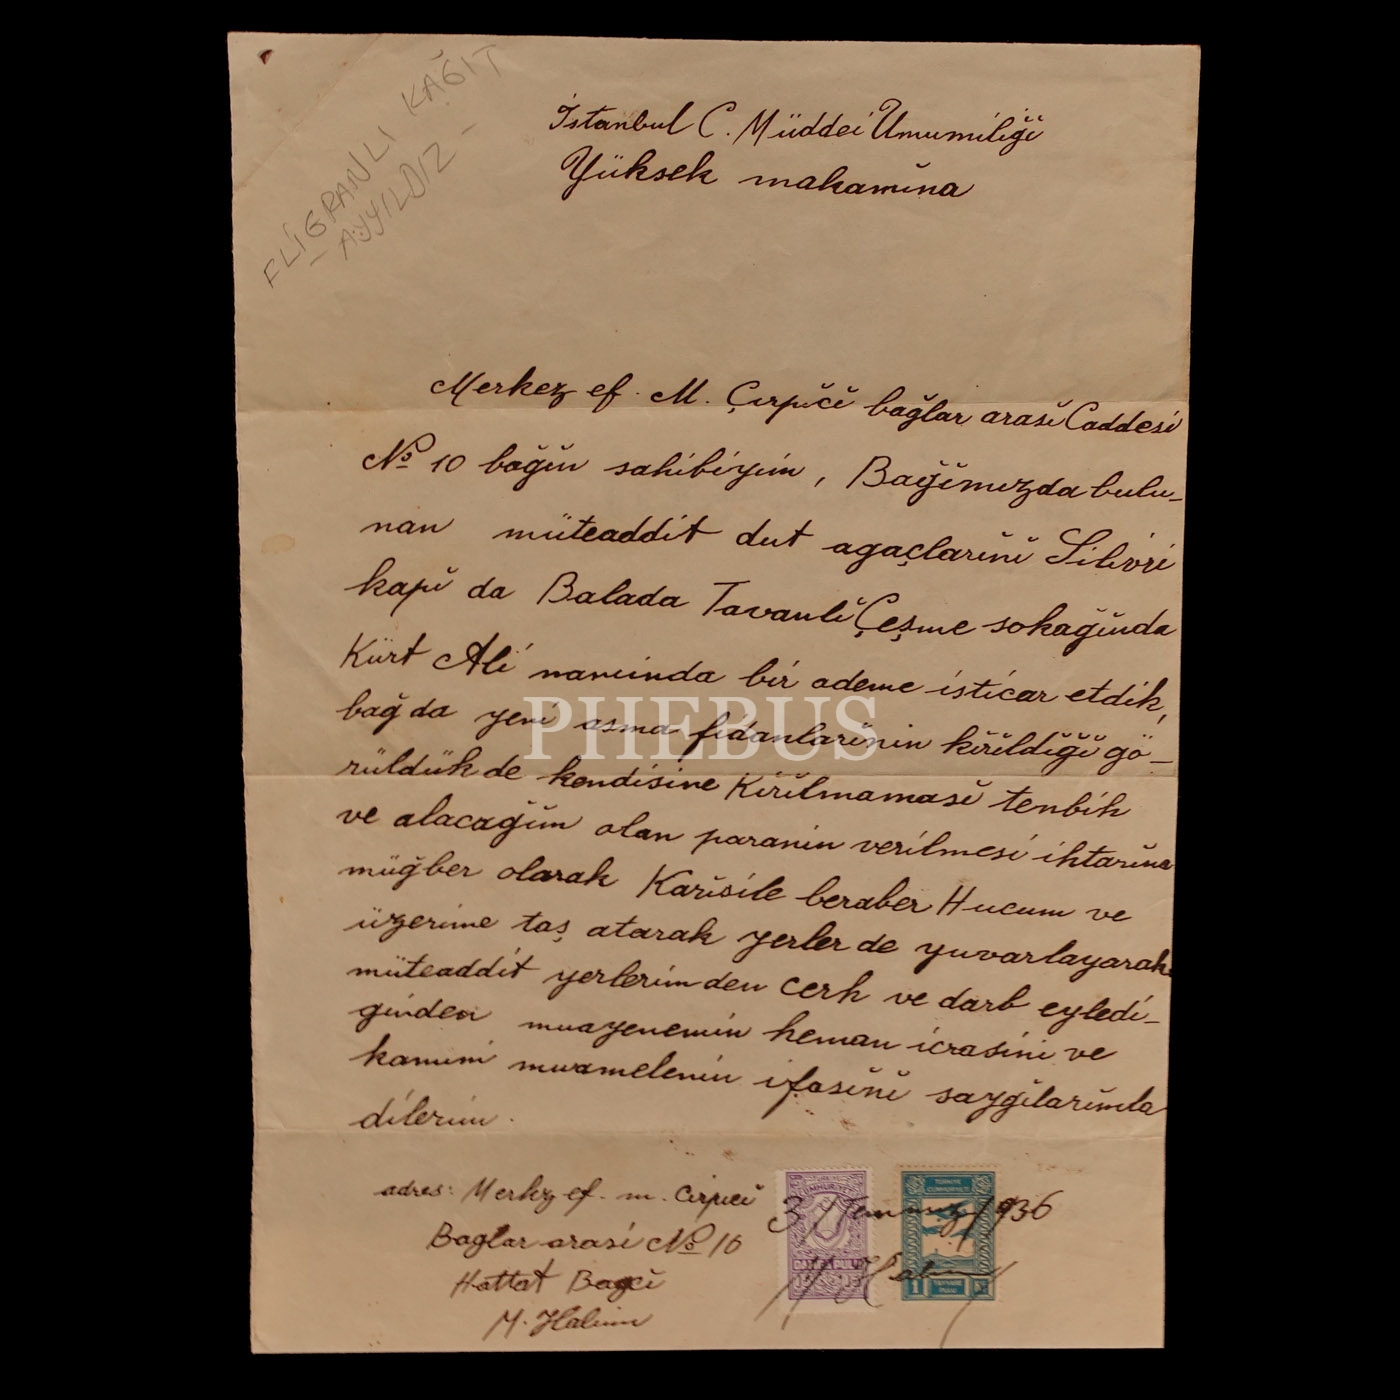 FLİGRANLI KAĞIT
- AYYILDIZ -
İstanbul C. Müddei Umumiliği
Yüksek makamına
Merkez ef. M. Çırpıcı bağlar arası Caddesi
No 10 bağın sahibiyim, Bağımızda bulu-
nan müteaddit dut agaçlarını Silivri
kapı da Balada Tavanlı Çeşme sokağında
Kürt Ali namında bir ademe isticar etdik,
bağda yeni asma fidanlarının kırıldığı gö-
rüldükde kendisine Kırılmaması tenbih
ve alacağım olan paranın verilmesi ihtarına
müğber olarak Karısile beraber Hucum ve
üzerime taş atarak yerlerde yuvarlayarak
müteaddit yerlerimden cerh ve darb eyledi-
ginden muayenemin heman icrasini ve
kanuni muamelenin ifasını saygılarımla
dilerim.
adres: Merkz ef. m. Cırpıcı
Baglar arasi No 10
Hattat Bagcı
M. Halim
3/Temmuz/1936
M Halim
TÜRKİYE
CUMHURİYETİ
DAMGA PULU
15 15
TÜRKİYE
CUMHURİYETİ
1
PHEBUS